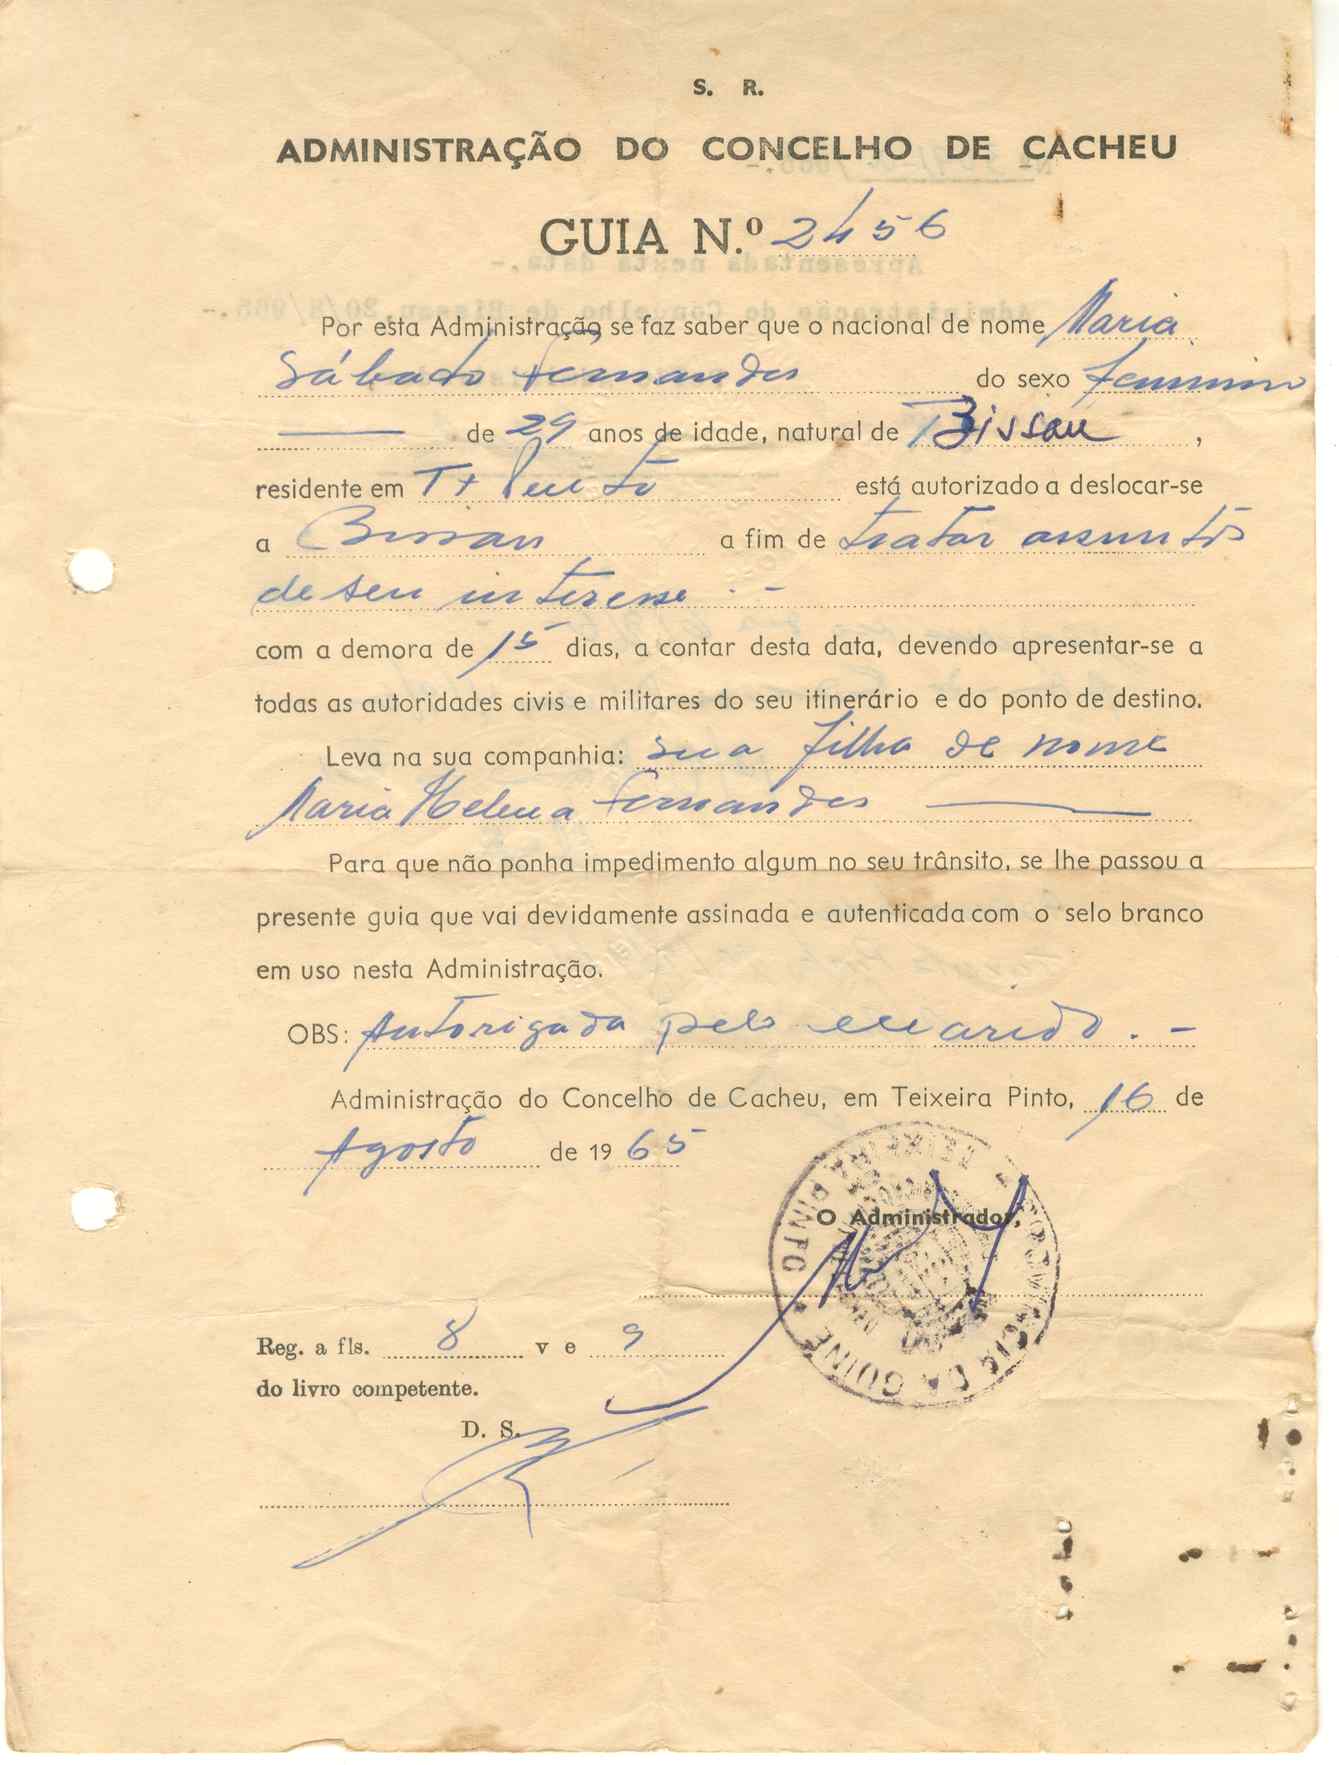 S. R.
ADMINISTRAÇÃO DO CONCELHO DE CACHEU
GUIA N.º 2456
Por esta Administração se faz saber que o nacional de nome Maria
Sábado Fernandes do sexo feminino
de 29 anos de idade, natural de Bissau,
residente em Tx Pinto está autorizado a deslocar-se
a Bissau a fim de tratar assuntos
de seu interesse.-
com a demora de 15 dias, a contar desta data, devendo apresentar-se a
todas as autoridades civis e militares do seu itinerário e do ponto de destino.
Leva na sua companhia: sua filha de nome
Maria Helena Fernandes
Para que não ponha impedimento algum no seu trânsito, se lhe passou a
presente guia que vai devidamente assinada e autenticada com o selo branco
em uso nesta Administração.
OBS: Autorigada pelo marido.-
Administração do Concelho de Cacheu, em Teixeira Pinto, 16 de
Agosto de 1965
O Administrador,
PROVINCIA DA GUINÉ
TEIXEIRA PINTO
Reg. a fls. 8 v e 9
do livro competente.
D. S.